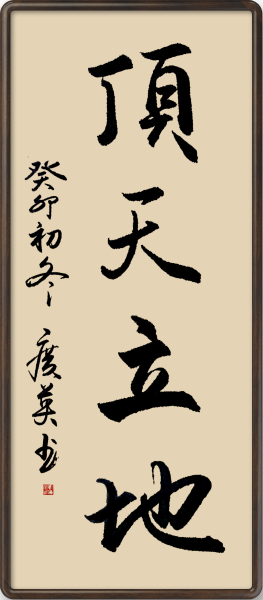 頂天立地
癸卯初冬 广英书